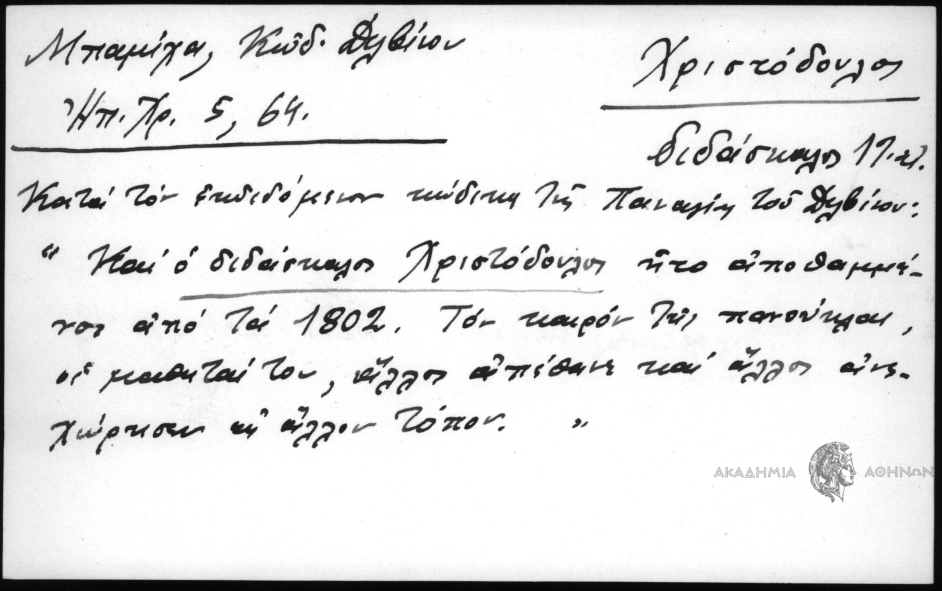 Μπαμίχα, Κώδ. Δελβίνου
Ἠπ. Χρ. 5, 64.
Χριστόδουλος
διδάσκαλος
Κατά τόν ἐκδιδόμενον κώδικα τῆς Παναγίας τοῦ Δελβίνου:
"Καί ὁ διδάσκαλος Χριστόδουλος ἦτο ἀποθαμμέ-
νος ἀπό τά 1802. Τόν καιρόν τῆς πανούκλας,
οἱ μαθηταί του, ἄλλος ἀπέθανε καί ἄλλος ἀνε-
χώρησεν εἰς ἄλλον τόπον. "
ΑΚΑΔΗΜΙΑ ΑΘΗΝΩΝ